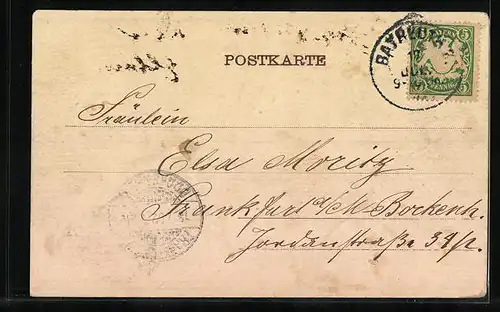 POSTKARTE
BAYREUTH
5
Fräulein
Elsa Moritz
Frankfurt a/M Bockenh.
Jordanstraße